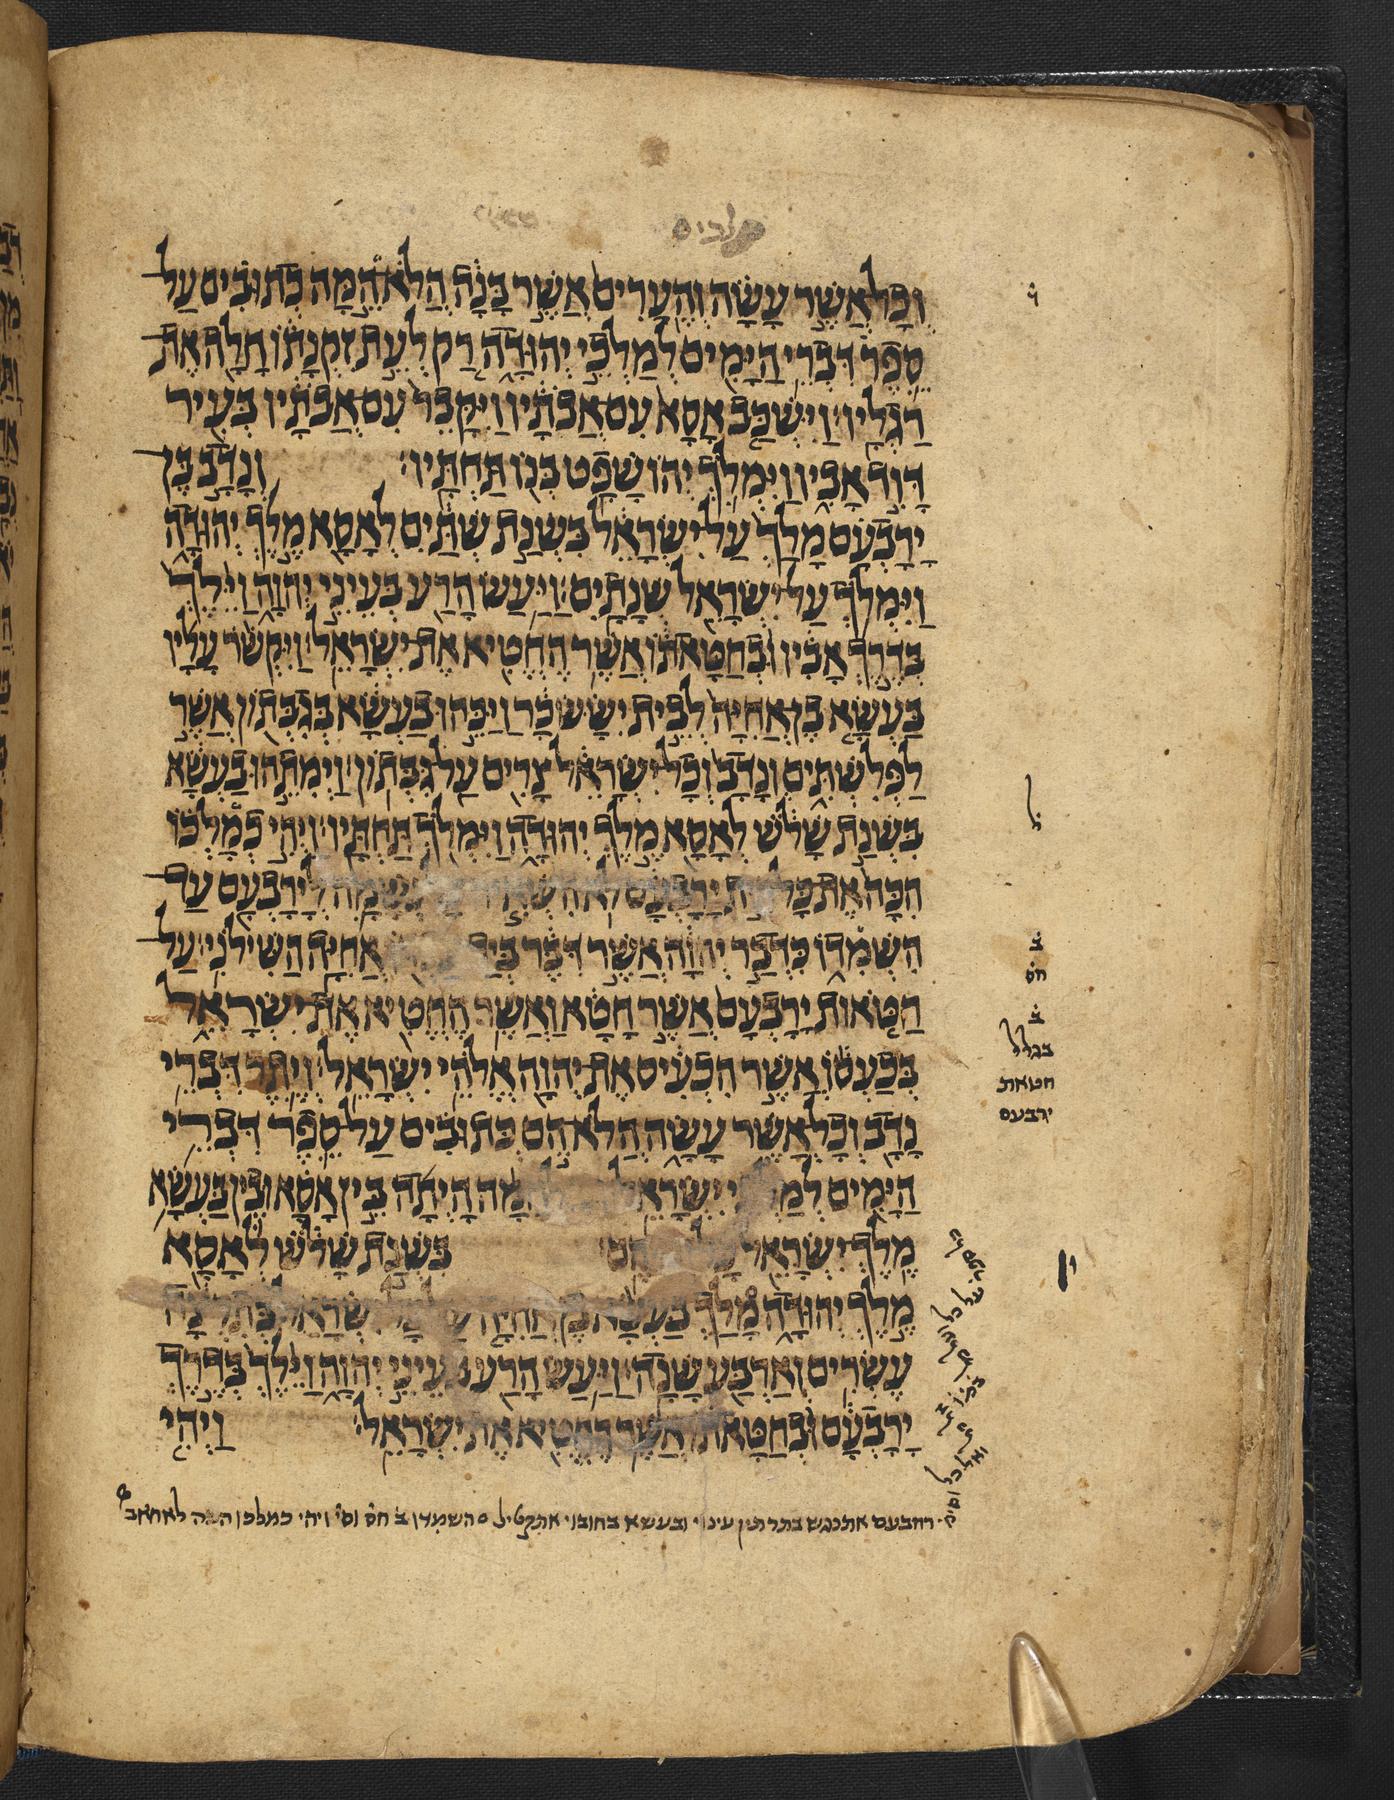 מלכים
וְכָל אֲשֶׁר עָשָׂה וְהֶעָרִים אֲשֶׁר בָּנָה הֲלֹא הֵמָּה כְתוּבִים עַל
סֵפֶר דִּבְרֵי הַיָּמִים לְמַלְכֵי יְהוּדָה רַק לְעֵת זִקְנָתוֹ חָלָה אֶת
רַגְלָיו׃ וַיִּשְׁכַּב אָסָא עִם אֲבֹתָיו וַיִּקָּבֵר עִם אֲבֹתָיו בְּעִיר
דָּוִד אָבִיו וַיִּמְלֹךְ יְהוֹשָׁפָט בְּנוֹ תַּחְתָּיו׃ וְנָדָב בֶּן
יָרָבְעָם מָלַךְ עַל יִשְׂרָאֵל בִּשְׁנַת שְׁתַּיִם לְאָסָא מֶלֶךְ יְהוּדָה
וַיִּמְלֹךְ עַל יִשְׂרָאֵל שְׁנָתָיִם׃ וַיַּעַשׂ הָרַע בְּעֵינֵי יְהוָה וַיֵּלֶךְ
בְּדֶרֶךְ אָבִיו וּבְחַטָּאתוֹ אֲשֶׁר הֶחֱטִיא אֶת יִשְׂרָאֵל׃ וַיִּקְשֹׁר עָלָיו
בַּעְשָׁא בֶן אֲחִיָּה לְבֵית יִשָּׂשכָר וַיַּכֵּהוּ בַעְשָׁא בְּגִבְּתוֹן אֲשֶׁר
לַפְּלִשְׁתִּים וְנָדָב וְכָל יִשְׂרָאֵל צָרִים עַל גִּבְּתוֹן׃ וַיְמִתֵהוּ בַעְשָׁא
בִּשְׁנַת שָׁלֹשׁ לְאָסָא מֶלֶךְ יְהוּדָה וַיִּמְלֹךְ תַּחְתָּיו׃ וַיְהִי כְמָלְכוֹ
הִכָּה אֶת כָּל יָרָבְעָם לֹא הִשְׁאִיר נְשָׁמָה לְיָרָבְעָם עַד
הִשְׁמִדוֹ כִּדְבַר יְהוָה אֲשֶׁר דִּבֶּר בְּיַד אֲחִיָּה הַשִּׁילֹנִי׃ עַל
חַטֹּאות יָרָבְעָם אֲשֶׁר חָטָא וַאֲשֶׁר הֶחֱטִיא אֶת יִשְׂרָאֵל
בְּכַעְסוֹ אֲשֶׁר הִכְעִיס אֶת יְהוָה אֱלֹהֵי יִשְׂרָאֵל׃ וְיֶתֶר דִּבְרֵי
נָדָב וְכָל אֲשֶׁר עָשָׂה הֲלֹא הֵם כְּתוּבִים עַל סֵפֶר דִּבְרֵי
הַיָּמִים לְמַלְכֵי יִשְׂרָאֵל׃ וּמִלְחָמָה הָיְתָה בֵּין אָסָא וּבֵין בַּעְשָׁא
מֶלֶךְ יִשְׂרָאֵל כָּל יְמֵיהֶם׃ בִּשְׁנַת שָׁלֹשׁ לְאָסָא
מֶלֶךְ יְהוּדָה מָלַךְ בַּעְשָׁא בֶן אֲחִיָּה עַל כָּל יִשְׂרָאֵל בְּתִרְצָה
עֶשְׂרִים וְאַרְבַּע שָׁנָה׃ וַיַּעַשׂ הָרַע בְּעֵינֵי יְהוָה וַיֵּלֶךְ בְּדֶרֶךְ
יָרָבְעָם וּבְחַטָּאתוֹ אֲשֶׁר הֶחֱטִיא אֶת יִשְׂרָאֵל׃ וַיְהִי
ל
ב
חס
ב
בגלל
חטאת
ירבעם
רחבעם אתנגש בתר ובעשא בחובוי אתקטיל ס השמדו ב חס וס׳ ויהי כמלכו הכה לאחאב